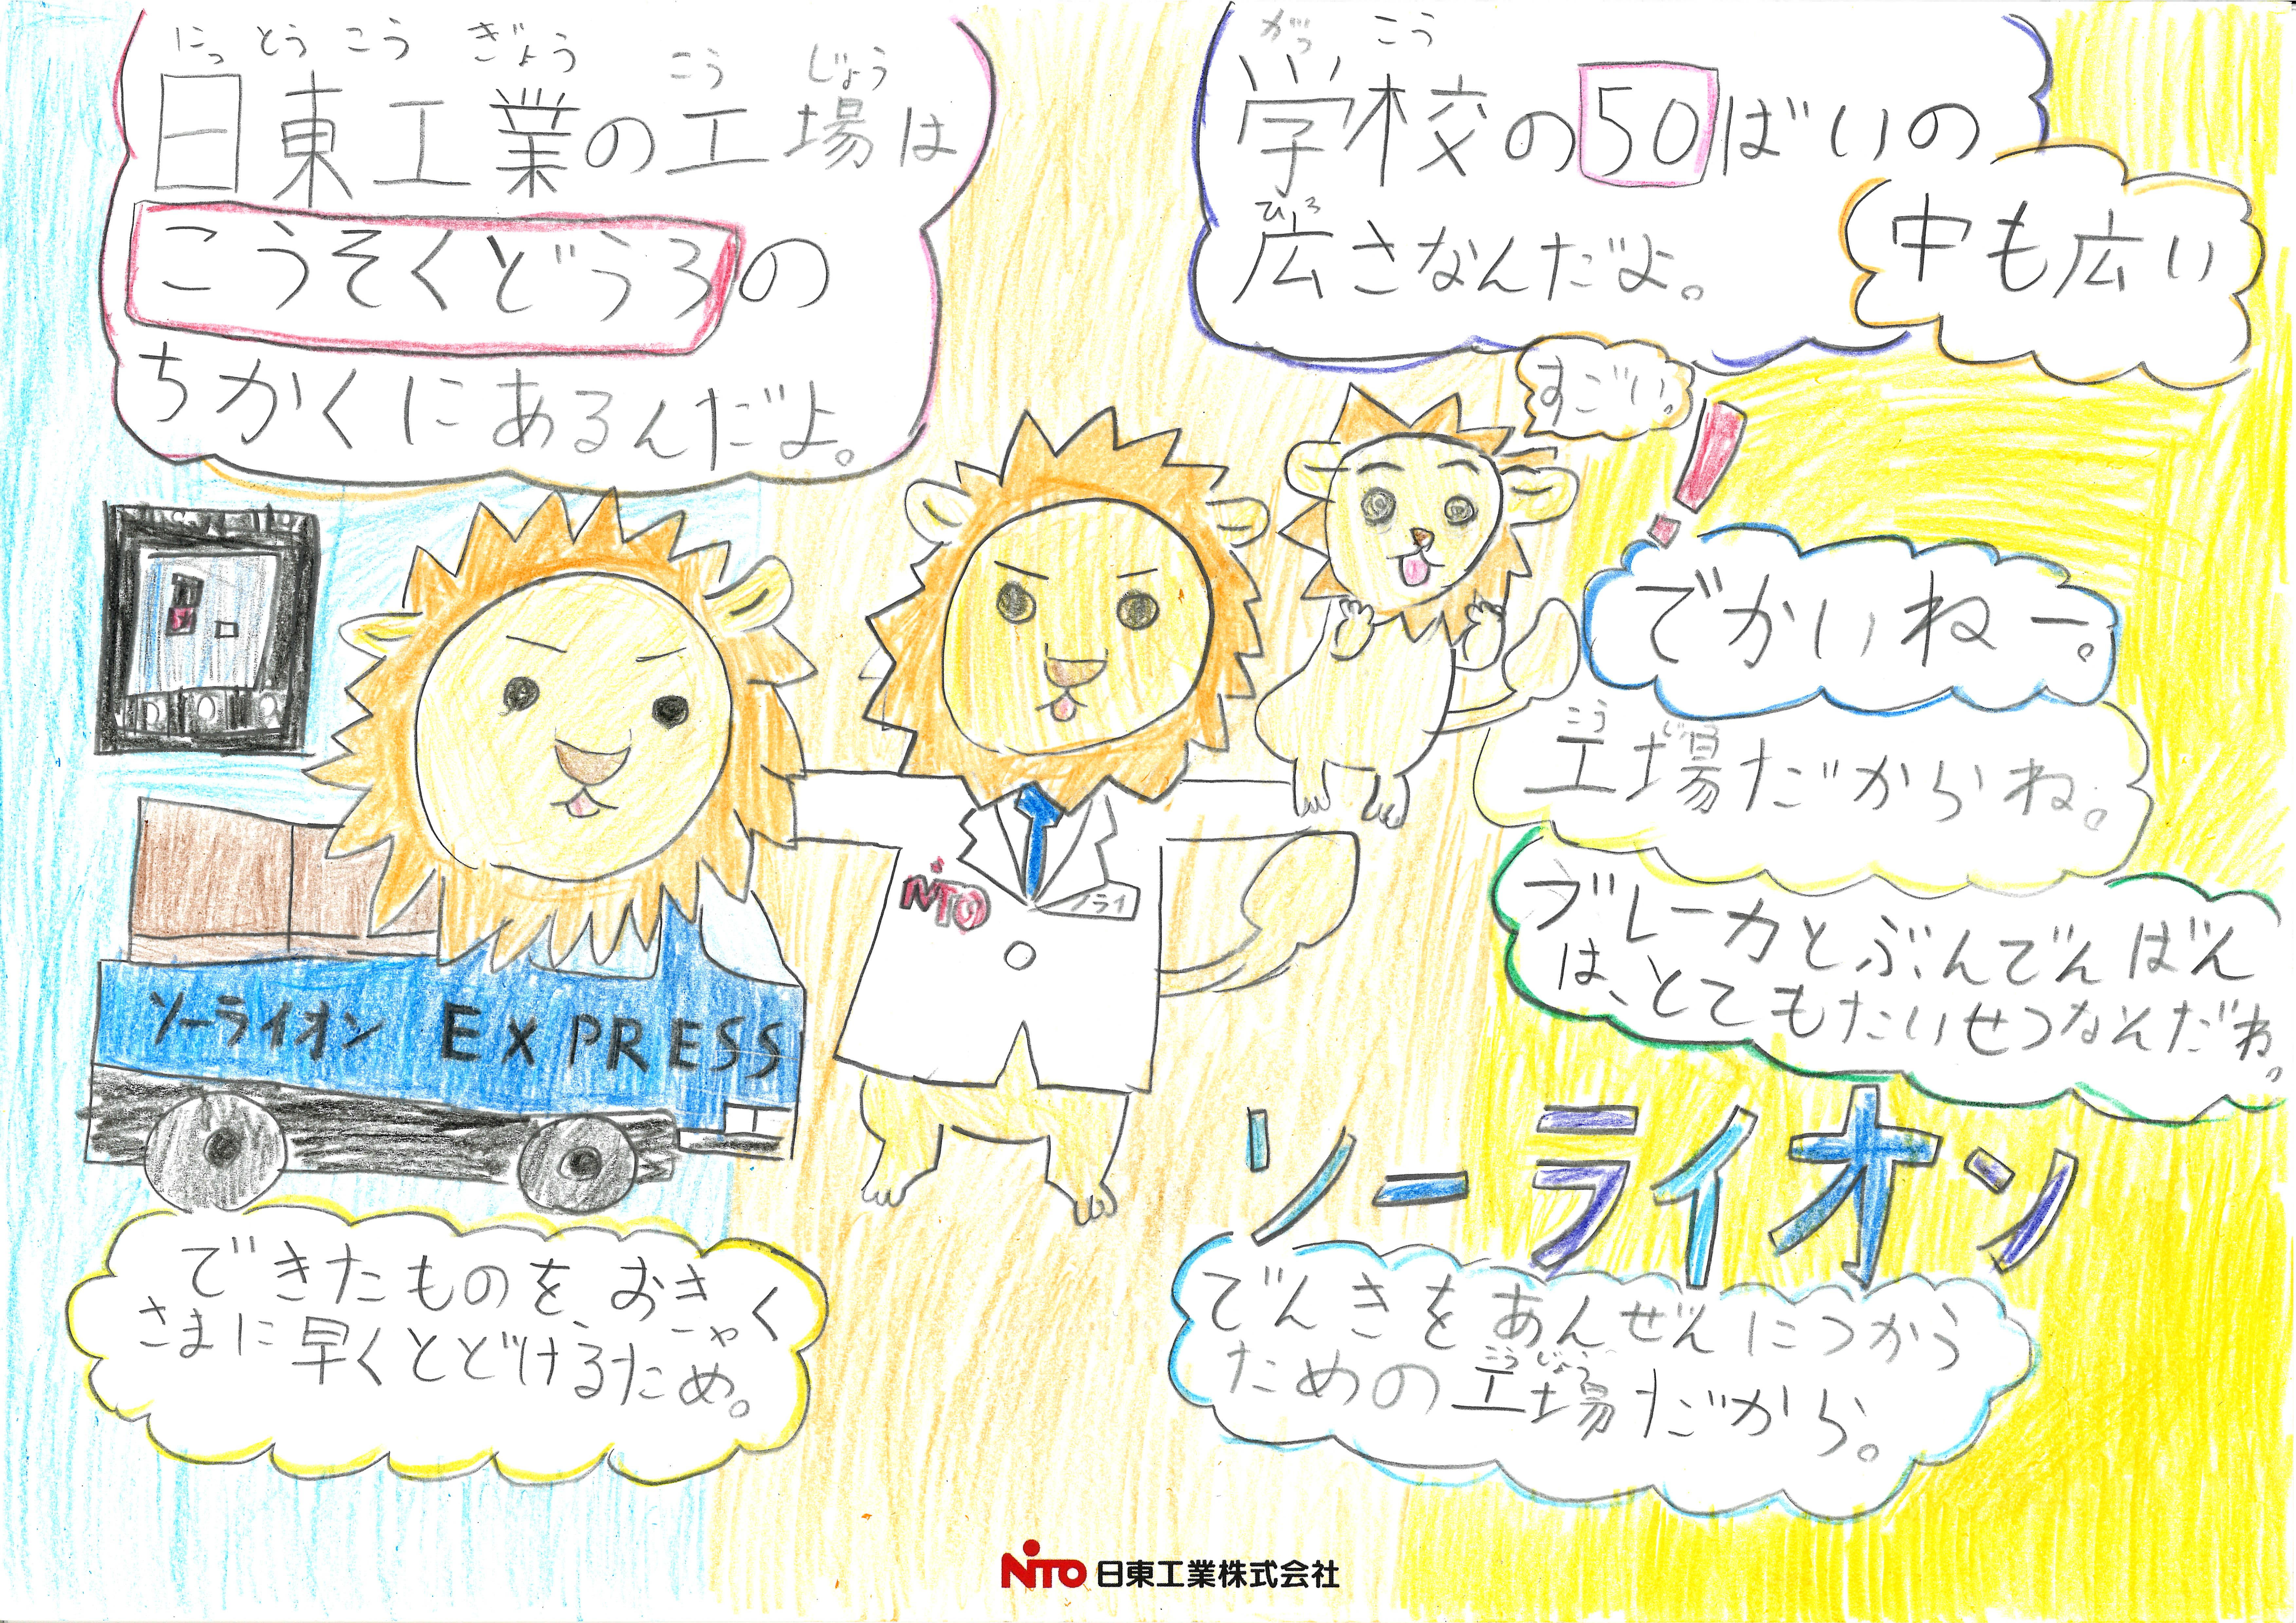 にっとうこうぎょう こうじょう
日東工業の工場は
こうそくどうろの
ちかくにあるんだよ。
がっこう
学校の50ばいの
ひろ
広さなんだよ。
中も広い
すごい。
!
でかいねー。
こうじょう
工場だからね。
ブレーカとぶんでんばん
は、とてもたいせつなんだね。
NiTO
ノライ
ソーライオン EXPRESS
ソーライオン
できたものをおきゃく
さまに早くとどけるため。
でんきをあんぜんにつかう
こうじょう
ための工場だから。
NiTO 日東工業株式会社